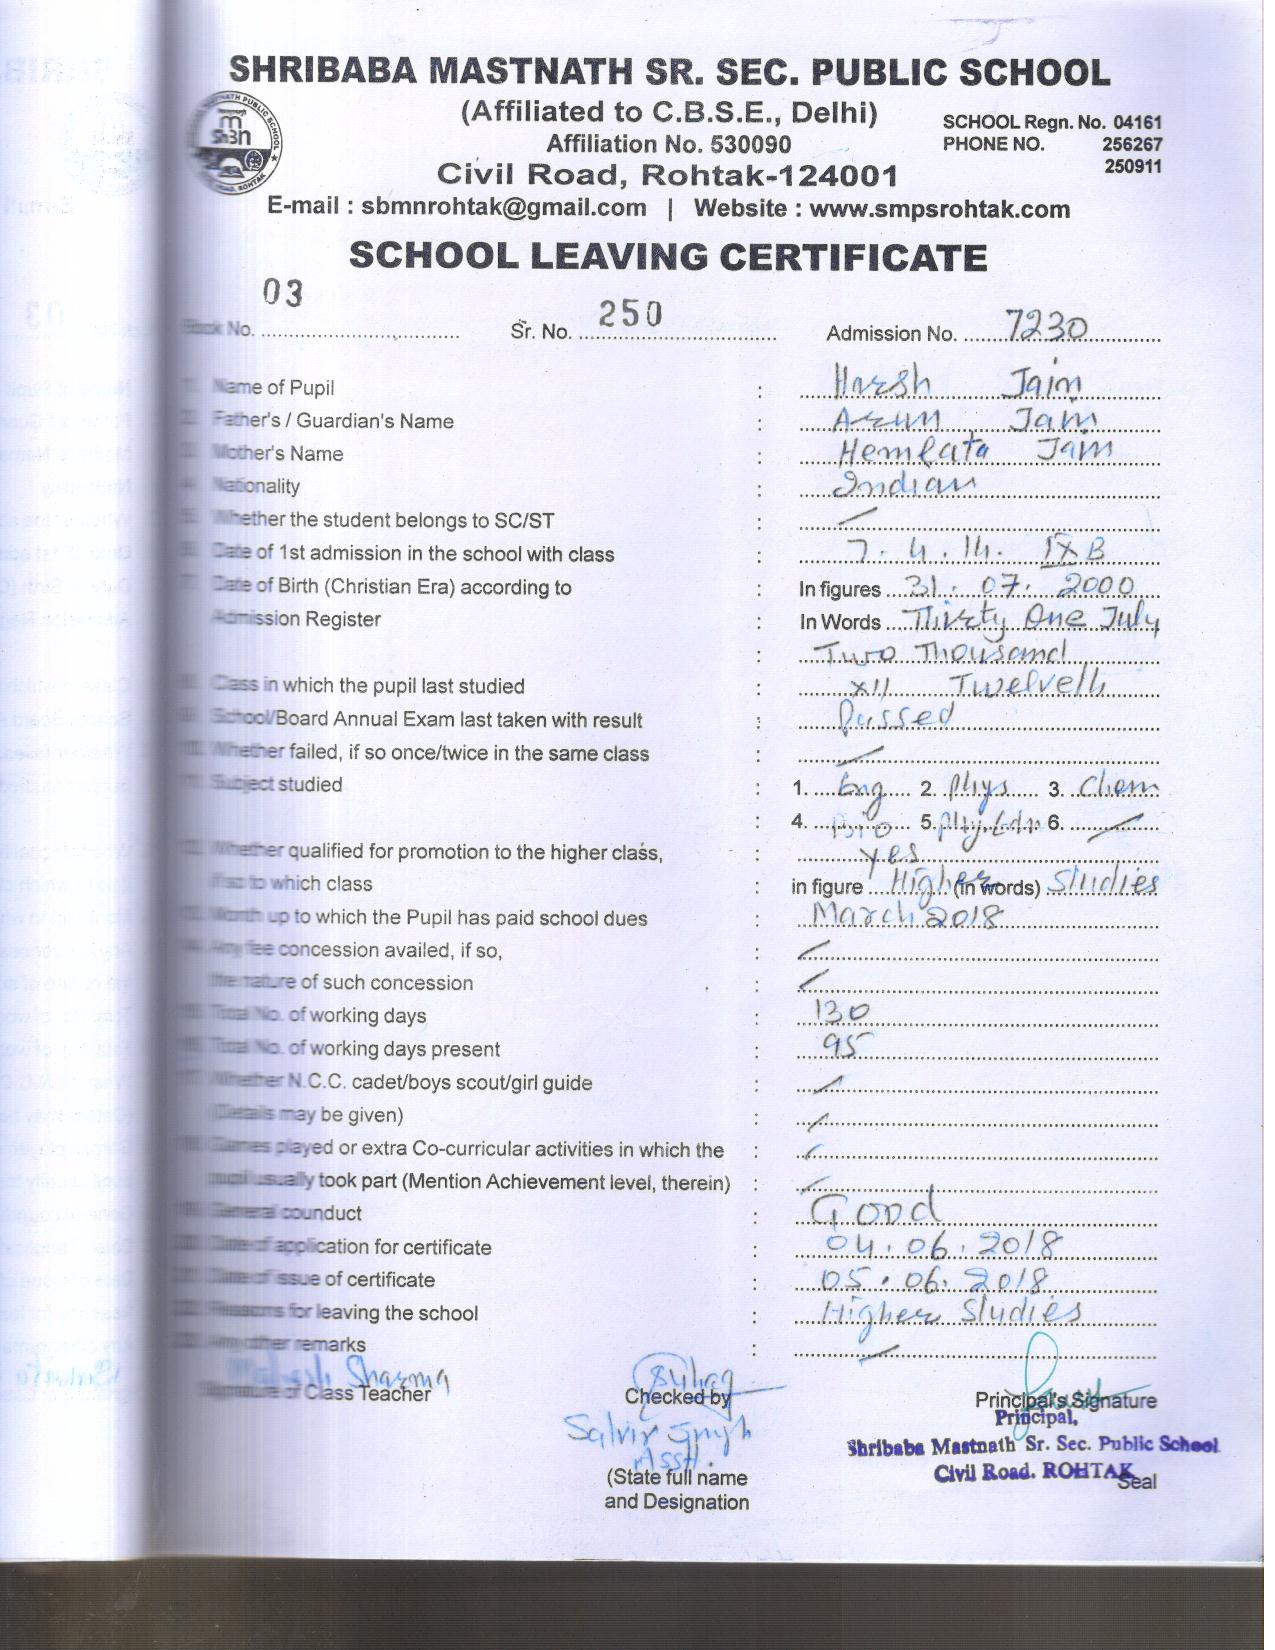 SHRIBABA MASTNATH SR. SEC. PUBLIC SCHOOL
(Affiliated to C.B.S.E., Delhi)
Affiliation No. 530090
SCHOOL Regn. No. 04161
PHONE NO. 256267
250911
Civil Road, Rohtak-124001
E-mail : sbmnrohtak@gmail.com | Website : www.smpsrohtak.com
SCHOOL LEAVING CERTIFICATE
Book No. 03 Sr. No. 250 Admission No. 7230
1. Name of Pupil : Harsh Jain
2. Father's / Guardian's Name : Arun Jain
3. Mother's Name : Hemlata Jain
4. Nationality : Indian
5. Whether the student belongs to SC/ST :
6. Date of 1st admission in the school with class : 7.4.14. IX B
7. Date of Birth (Christian Era) according to : In figures 31.07.2000
Admission Register : In Words Thirty One July
: Two Thousand
8. Class in which the pupil last studied : XII Twelveth
9. School/Board Annual Exam last taken with result : Passed
10. Whether failed, if so once/twice in the same class :
11. Subject studied : 1. Eng 2. Phys 3. Chem
: 4. Bio 5. Phy. Edn 6.
12. Whether qualified for promotion to the higher class, : yes
if so to which class : in figure Higher (in words) Studies
13. Month up to which the Pupil has paid school dues : March 2018
14. Any fee concession availed, if so, :
the nature of such concession :
15. Total No. of working days : 130
16. Total No. of working days present : 95
17. Whether N.C.C. cadet/boys scout/girl guide :
(Details may be given) :
18. Games played or extra Co-curricular activities in which the :
pupil usually took part (Mention Achievement level, therein) :
19. General counduct : Good
20. Date of application for certificate : 04.06.2018
21. Date of issue of certificate : 05.06.2018
22. Reasons for leaving the school : Higher Studies
23. Any other remarks :
Sharma
Signature of Class Teacher Checked by Principal's Signature
Principal,
Shribaba Mastnath Sr. Sec. Public School
Civil Road. ROHTAK
Seal
Singh
Asstt.
(State full name
and Designation